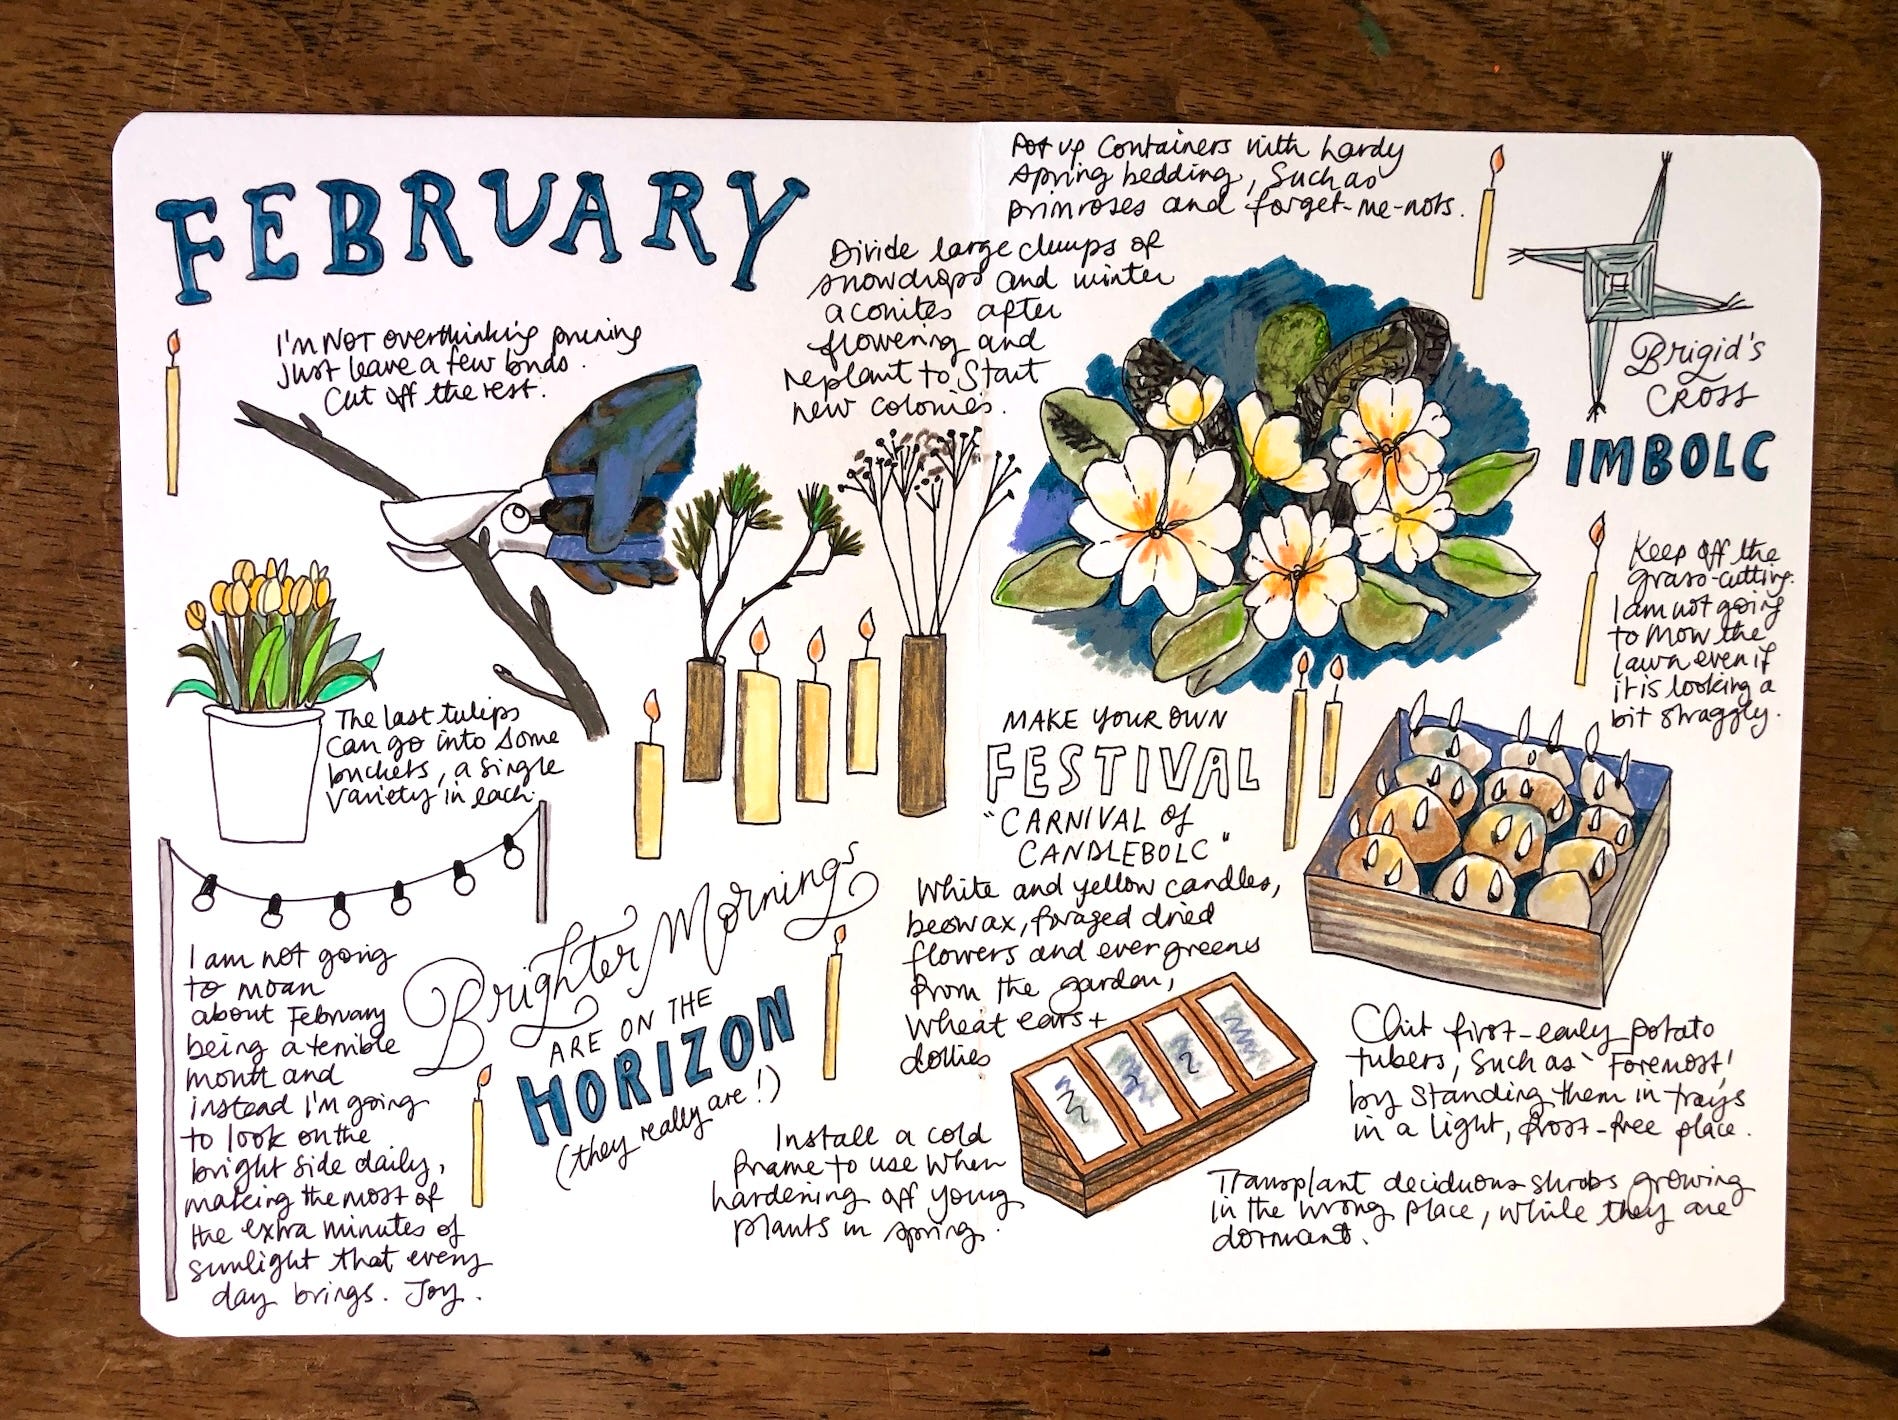 FEBRUARY
I'm NOT overthinking pruning
Just leave a few buds.
Cut off the rest.
The last tulips
can go into some
buckets, a single
variety in each.
I am not going
to moan
about February
being a terrible
month and
instead I'm going
to look on the
bright side daily,
making the most of
the extra minutes of
sunlight that every
day brings. Joy.
Brighter Mornings
ARE ON THE
HORIZON
(they really are!)
Divide large clumps of
snowdrops and winter
aconites after
flowering and
replant to start
new colonies.
Pot up containers with hardy
spring bedding, such as
primroses and forget-me-nots.
Brigid's
CROSS
IMBOLC
Keep off the
grass-cutting.
I am not going
to mow the
lawn even if
it is looking a
bit straggly.
MAKE YOUR OWN
FESTIVAL
"CARNIVAL of
CANDLEBOLC"
White and yellow candles,
beeswax, foraged dried
flowers and evergreens
from the garden,
wheat ears +
dollies
Install a cold
frame to use when
hardening off young
plants in spring.
Chit first-early potato
tubers, such as 'Foremost',
by standing them in trays
in a light, frost-free place.
Transplant deciduous shrubs growing
in the wrong place, while they are
dormant.